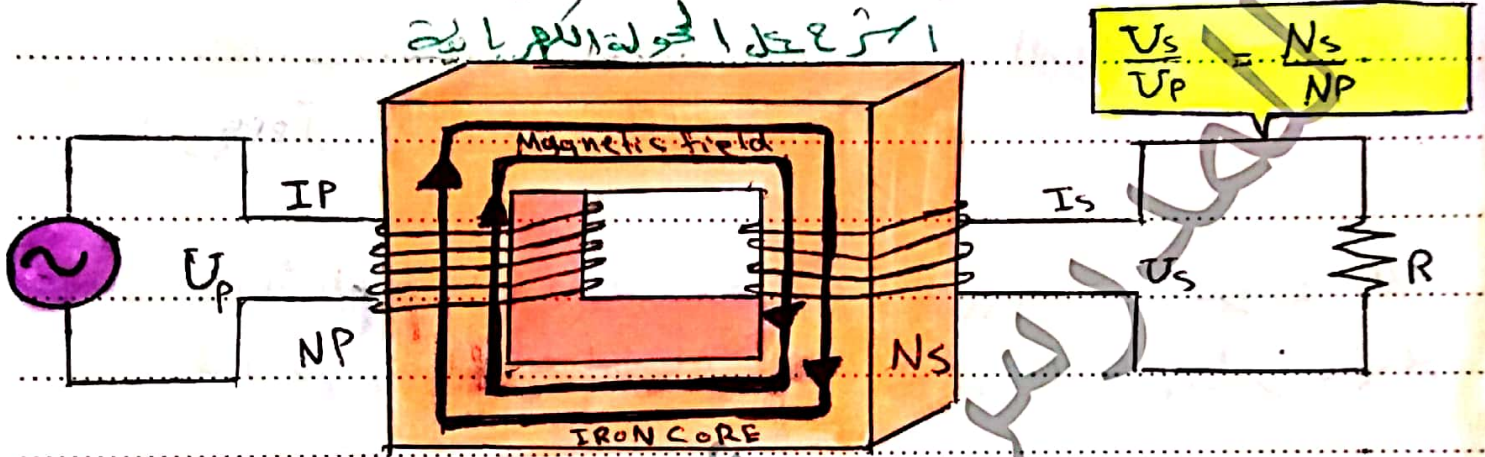 اشرح عمل المحولة الكهربائية
Us / Up = Ns / NP
Magnetic field
IP
Is
Up
Us
R
NP
Ns
IRON CORE